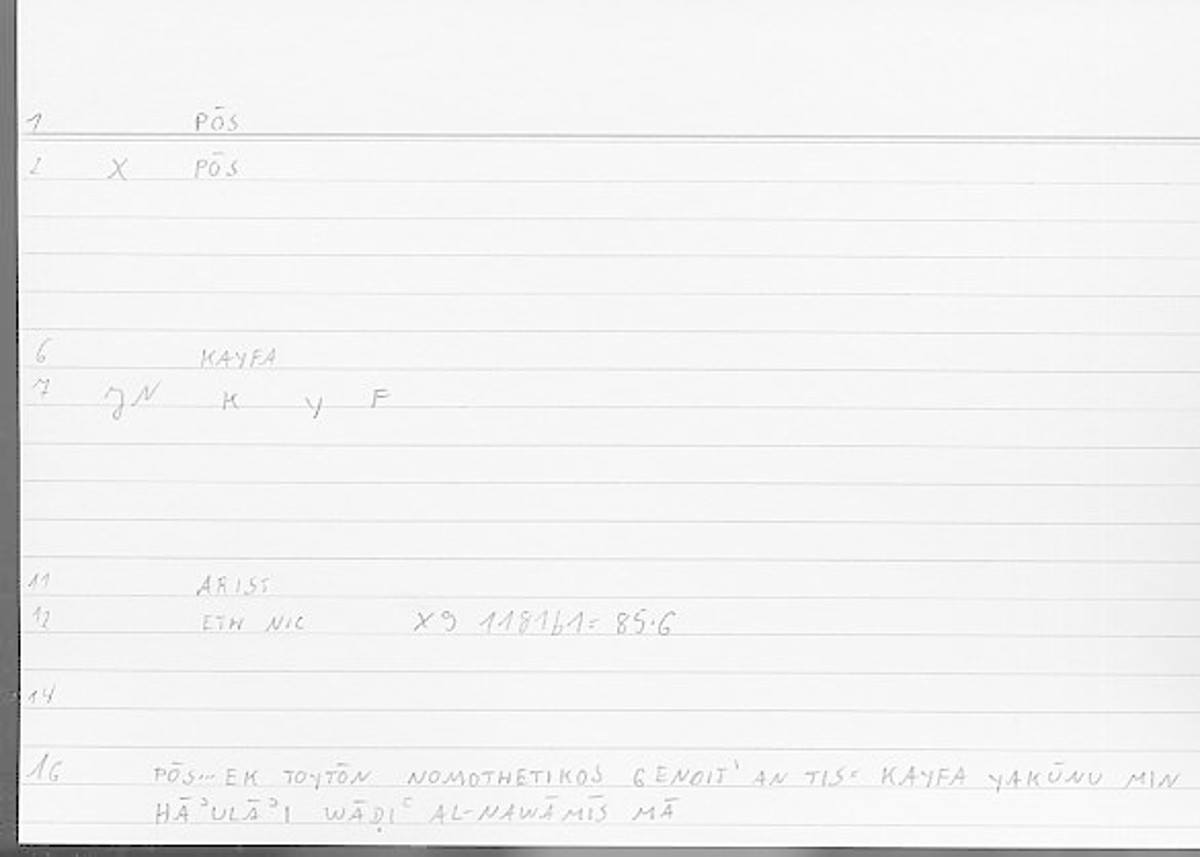 1 PŌS
2 X PŌS
6 KAYFA
7 JN K Y F
11 ARIST
12 ETH NIC X9 1181b1= 85.6
14
16 PŌS... EK TOYTŌN NOMOTHETIKOS GENOIT' AN TIS= KAYFA YAKŪNU MIN
HĀʾULĀʾI WĀḌIʿ AL-NAWĀMĪS MĀ